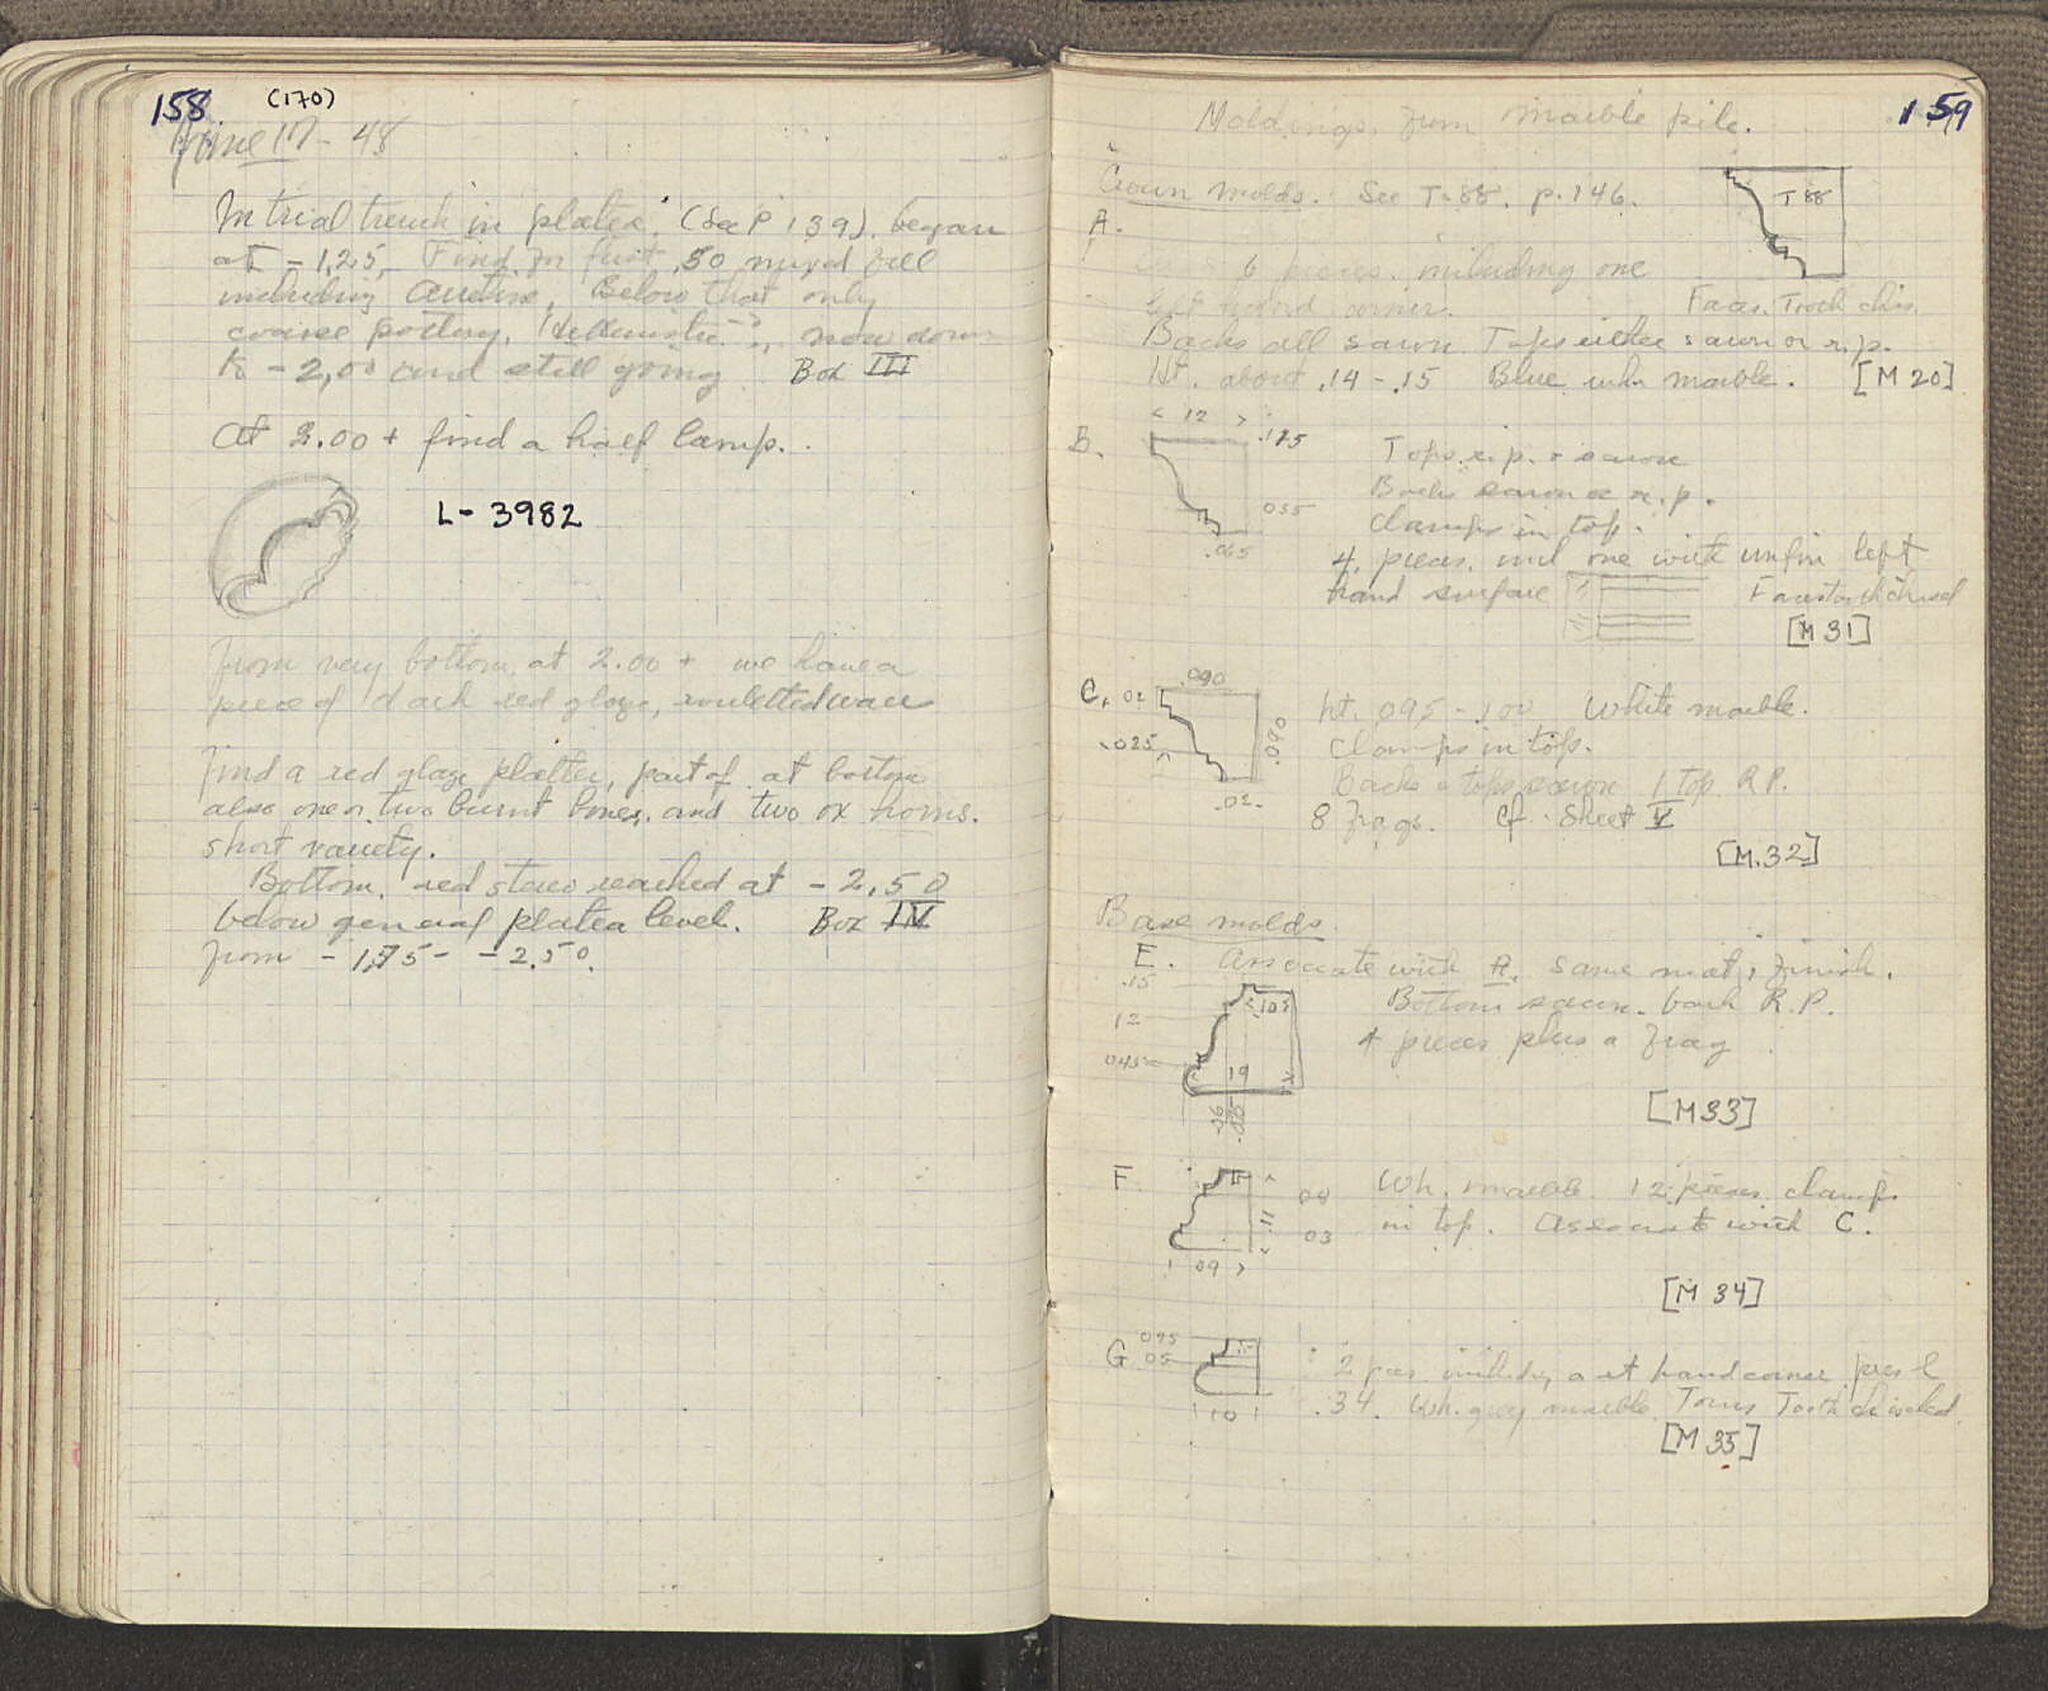 158 (170)
June 17 - 48
In trial trench in platea. (See P 139). began
at - 1.25. Find for first .50 mixed fill
including Arretine, Below that only
coarse pottery, Hellenistic?, now down
to - 2,00 and still going. Box III
At 2.00 + find a half lamp.
L- 3982
From very bottom, at 2.00 + we have a
piece of dark red glaze, rouletted ware
Find a red glaze platter, part of at bottom
also one or two burnt bones, and two ox horns.
short variety.
Bottom, red stereo reached at - 2.50
below general platea level. Box IV
from - 1,75 - - 2.50.
159
Moldings, from marble pile.
Crown molds. See T-88. p. 146.
T 88
A.
6 pieces. including one
left hand corner. Faces. Tooth chis.
Backs all sawn Tops either sawn or r.p.
Ht. about .14 - .15 Blue wh. marble. [M 20]
B. < 12 >
.055
.065
Tops r.p. & sawn
Backs sawn or r.p.
Clamps in top.
4. pieces, incl one with unfin left
hand surface Faces tooth chisel
[M 31]
C. 02 .090
.025 .090
.02
ht. 095 - .100 White marble.
Clamps in tops.
Backs & tops sawn 1 top R.P.
8 Frags. Cf. Sheet V
[M.32]
Base molds.
E. Associate with A. Same mat, finish.
.15
12
045
.105
19
Bottom sawn. back R.P.
4 pieces plus a frag
[M33]
F
.11
04
03
09 >
Wh. marble 12 pieces clamps
in top. Associate with C.
[M 34]
G 095
05
10
2 pcs including a rt hand corner pres L
.34. Wh. grey marble. Torus Tooth chiseled
[M 35]